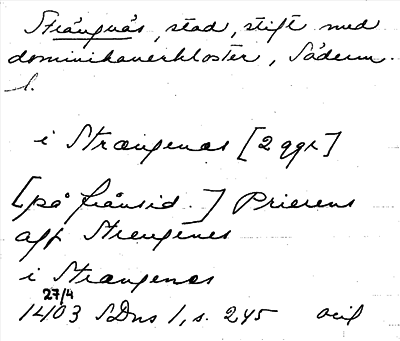 Strängnäs, stad, stift med
dominikanerkloster, Söderm.
l.
i Strængenæs [2 ggr]
[på frånsid.] Priorens
aff Strengenes
i Strængenæs
27/4
1403 SDns 1, s. 245 orig